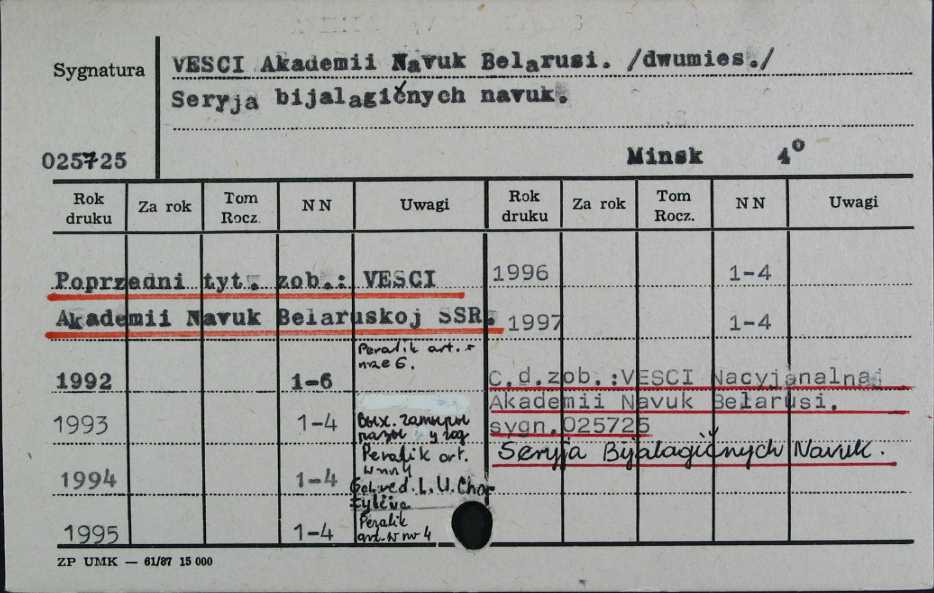 Sygnatura
VESCI Akademii Navuk Belarusi. /dwumies./
Seryja bijalagičnych navuk.
025725
Minsk 4°
Rok druku Za rok Tom Rocz. NN Uwagi Rok druku Za rok Tom Rocz. NN Uwagi
Poprzedni tyt. zob.: VESCI
Akademii Navuk Belaruskoj SSR.
Peralik art. w
nrze 6.
1992 1-6
1993 1-4
Вых. чатыры
разы у год
Peralik art.
w nr 4
1994 1-4
Gal. red. L. U. Chor
1995 1-4
Peralik
art. w nr 4
1996 1-4
1997 1-4
C.d.zob.:VESCI Nacyjanalnaj
Akademii Navuk Belarusi.
sygn.025725
Seryja Bijalagičnych Navuk.
ZP UMK — 61/87 15 000